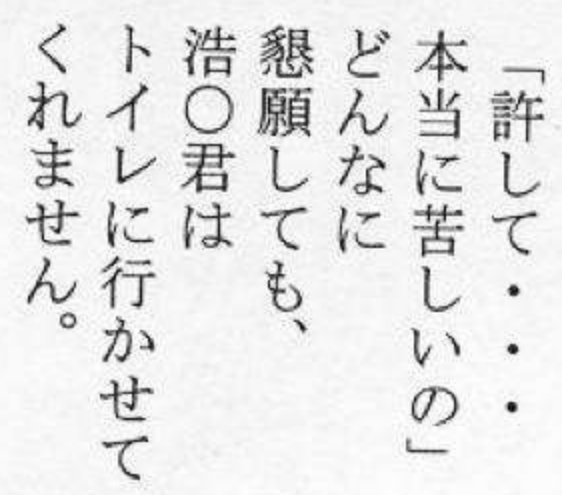 「許して・・・
本当に苦しいの」
どんなに
懇願しても、
浩〇君は
トイレに行かせて
くれません。